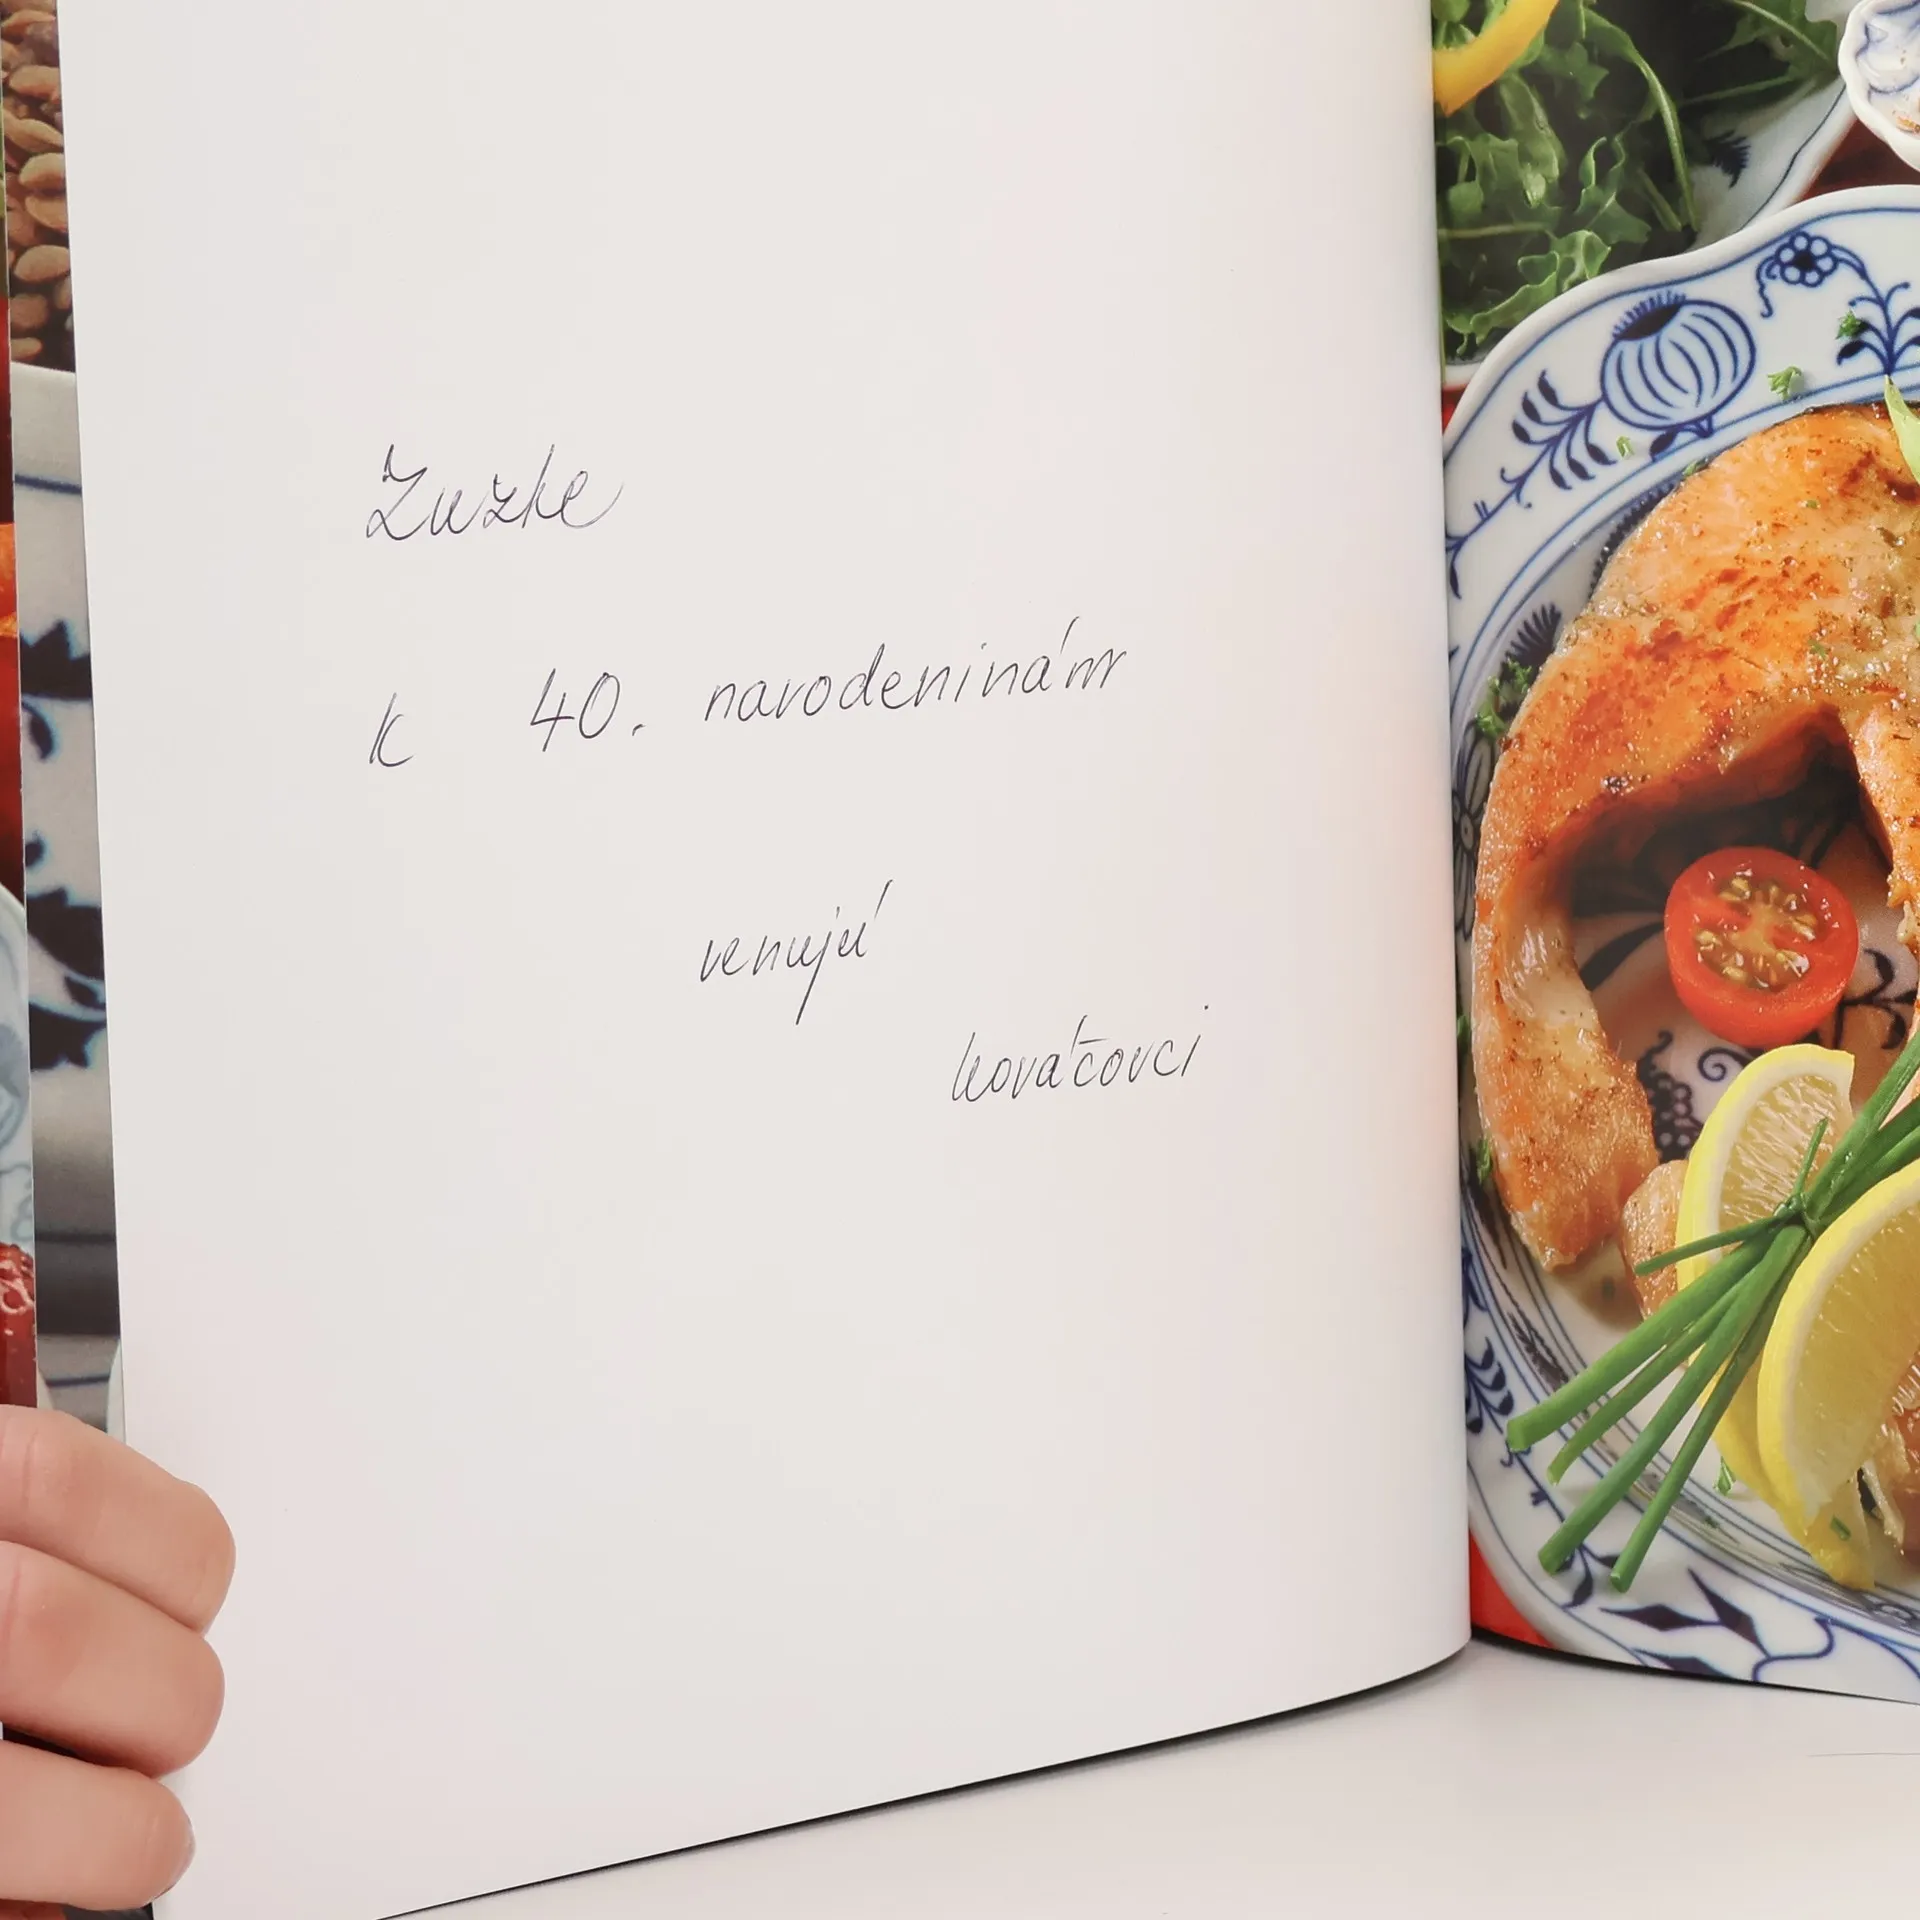 Zuzke
k 40. narodeninám
venujú
Kováčovci